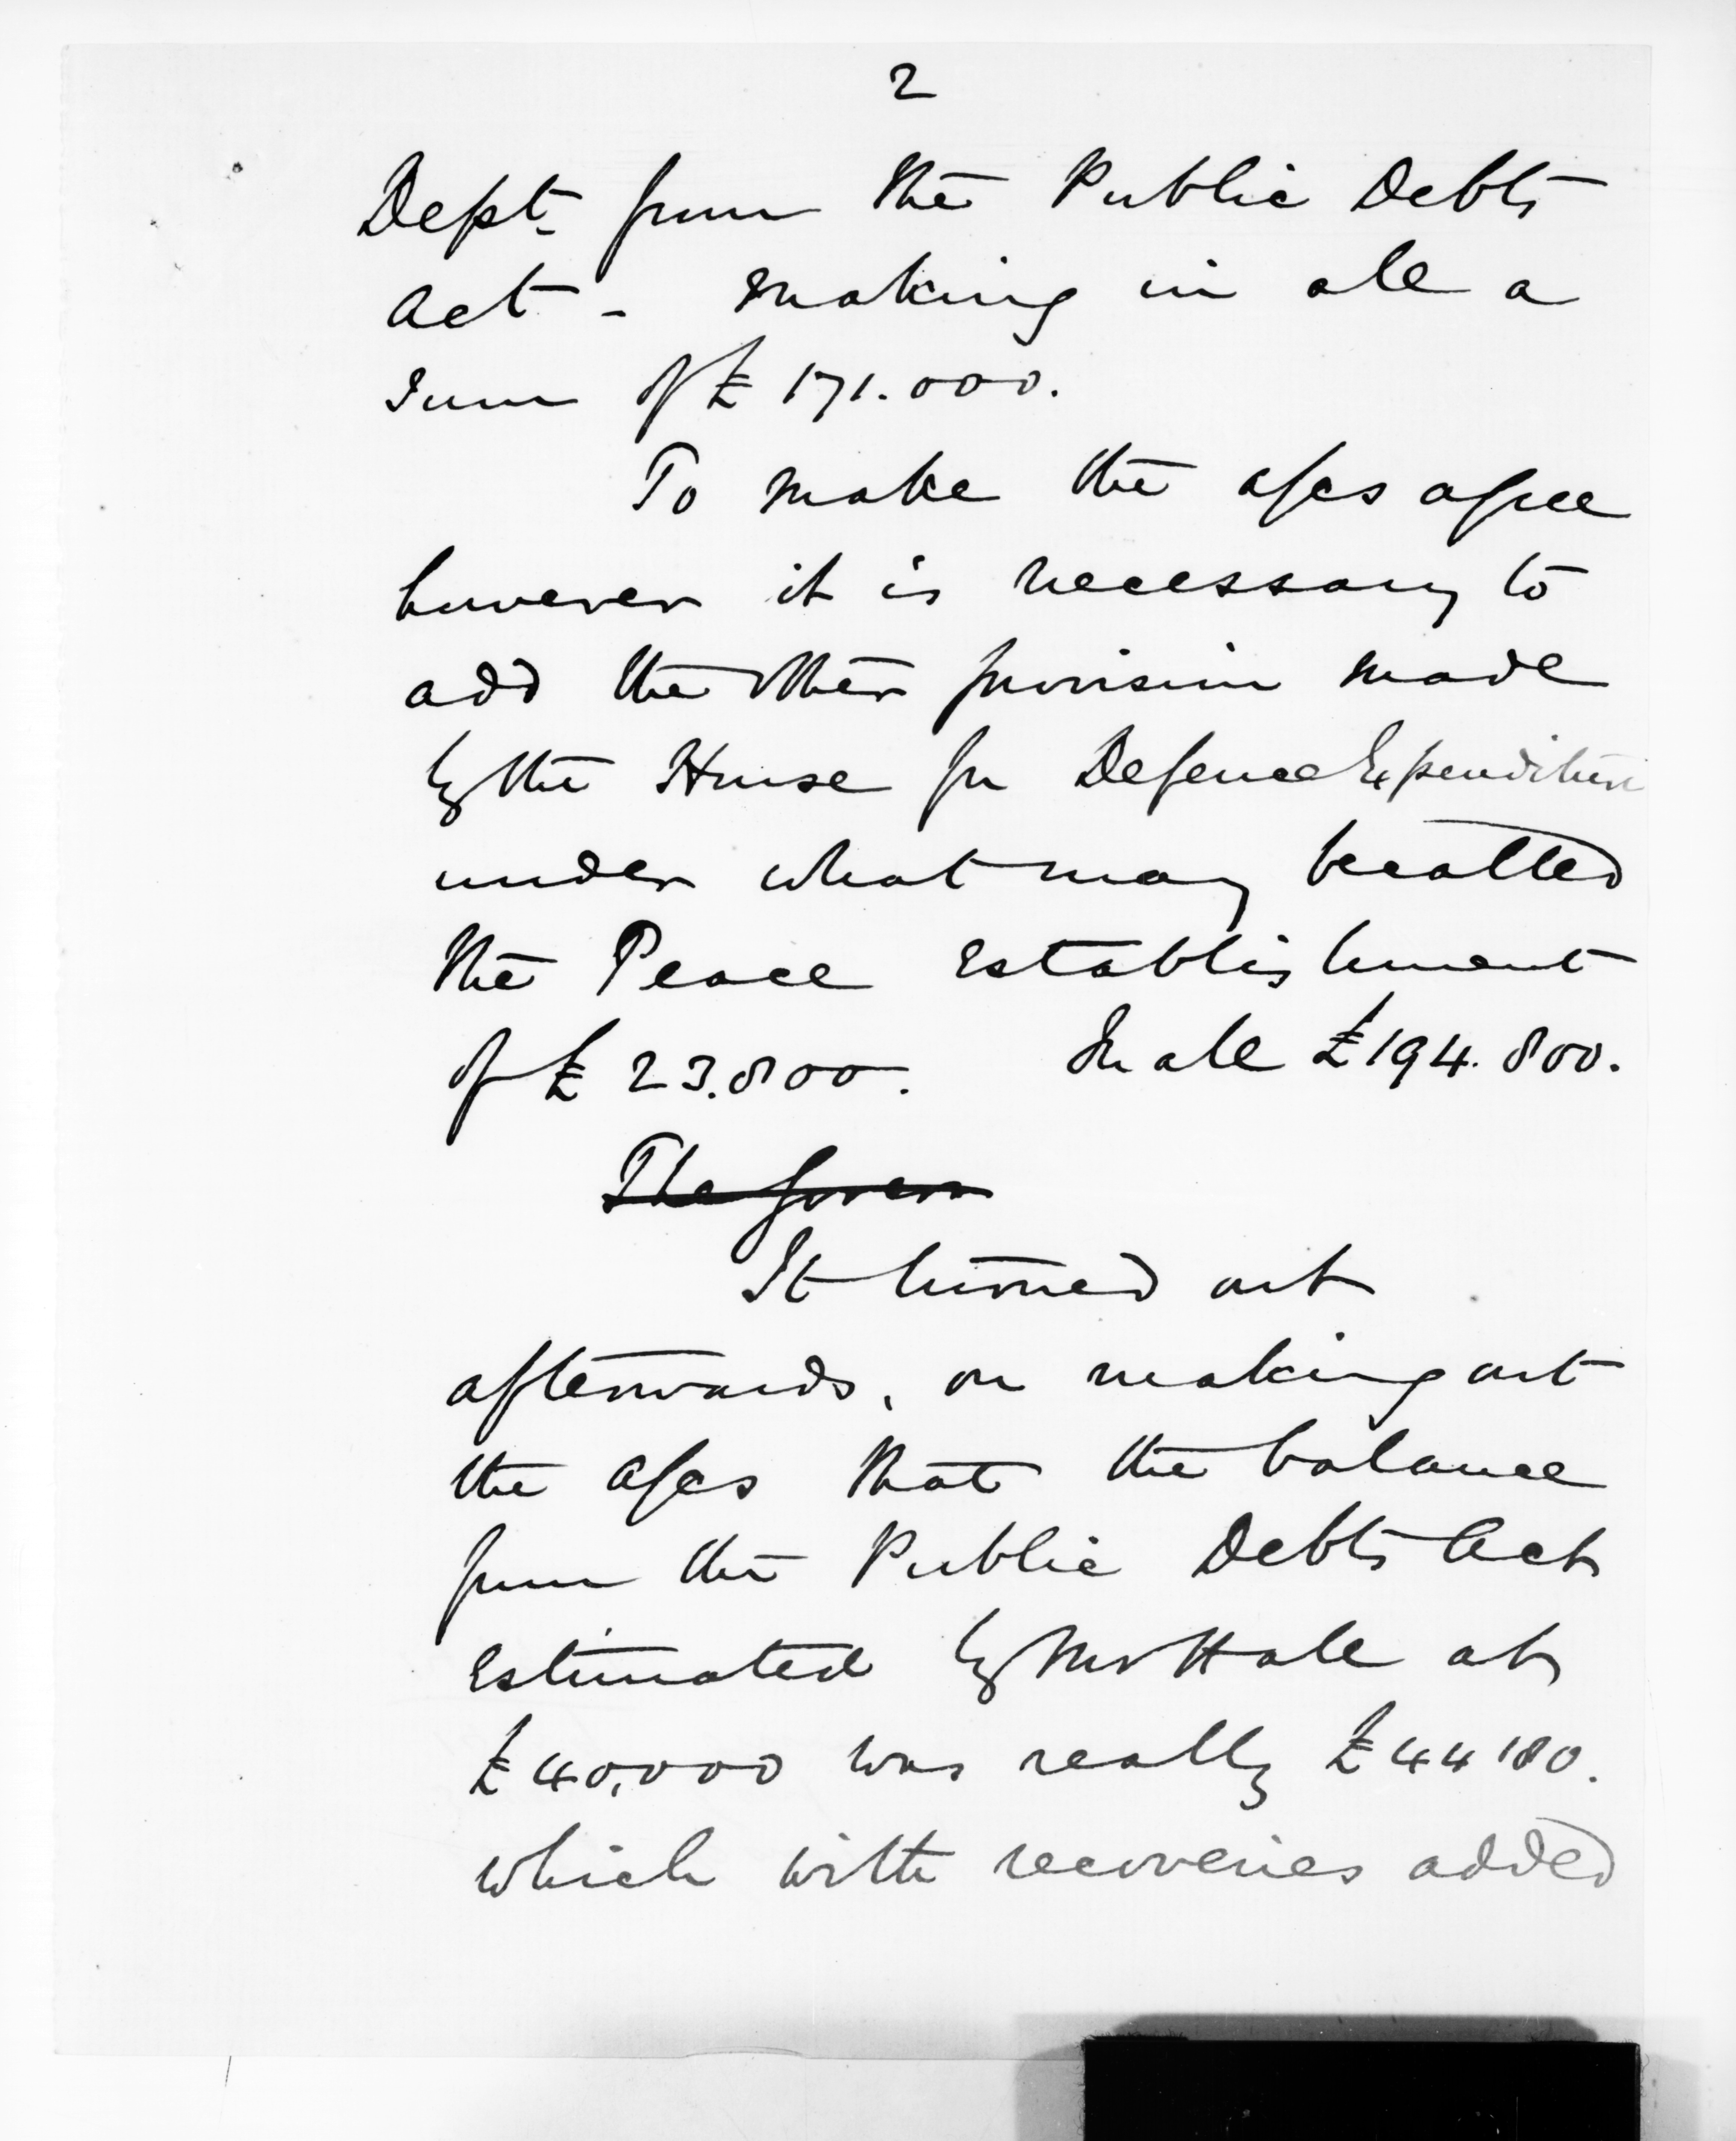 2
Dept. from the Public Debts
Act - making in all a
sum of £171.000.
To make the a/cs agree
however it is necessary to
add the other provision made
by the House for Defence Expenditure
under what may be called
the Peace Establishment
of £23.800. In all £194.800.
The Govern
It turned out
afterwards, on making out
the a/cs that the balance
from the Public Debts Act
estimated by Mr Hall at
£40,000 was really £44180.
which with recoveries added